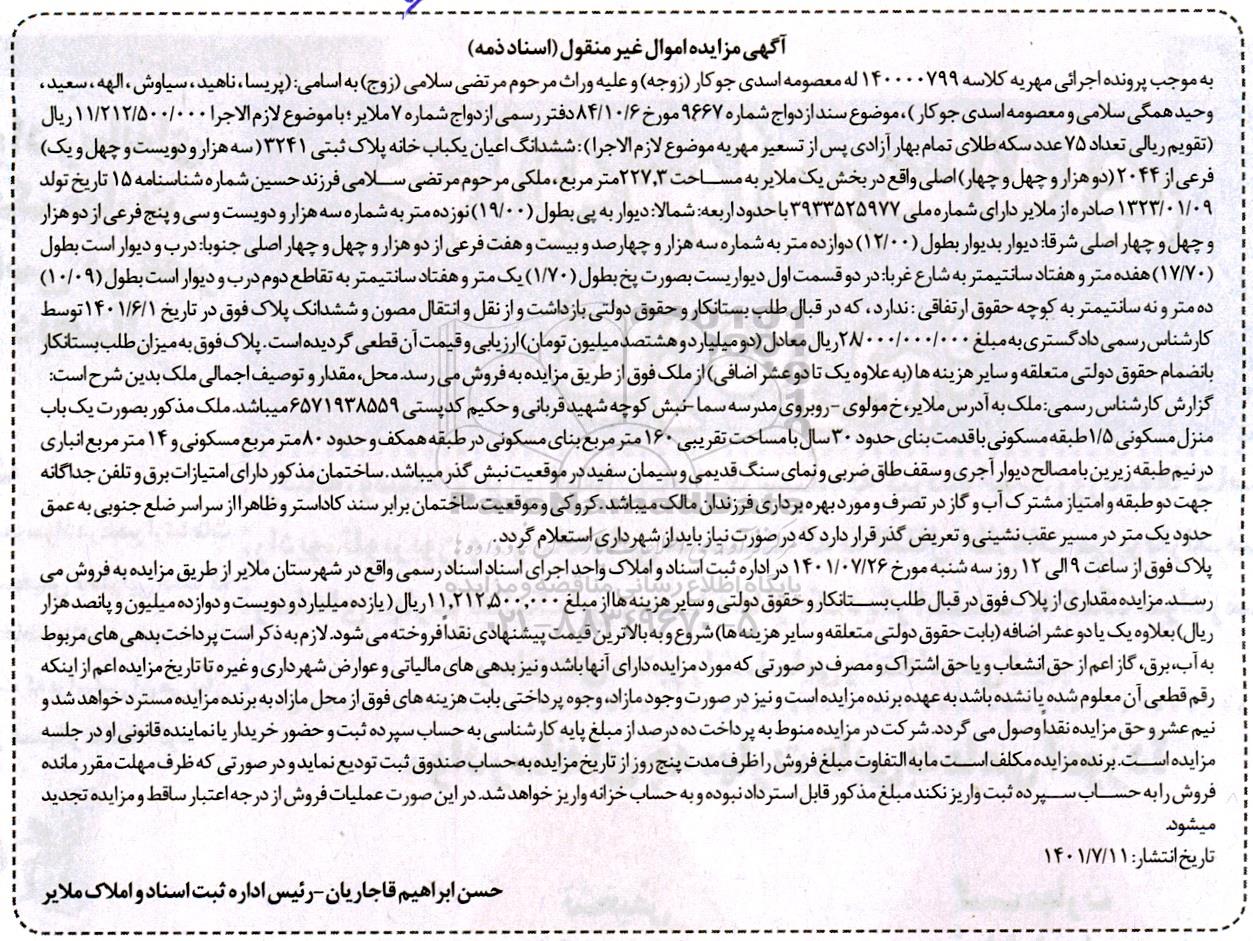 آگهی مزایده اموال غیر منقول (اسناد ذمه)
به موجب پرونده اجرائی مهریه کلاسه ۱۴۰۰۰۰۷۹۹ له معصومه اسدی جوکار (زوجه) و علیه وراث مرحوم مرتضی سلامی (زوج) به اسامی: (پریسا، ناهید، سیاوش، الهه، سعید،
وحید همگی سلامی و معصومه اسدی جوکار)، موضوع سند ازدواج شماره ۹۶۶۷ مورخ ۸۴/۱۰/۶ دفتر رسمی ازدواج شماره ۷ ملایر؛ با موضوع لازم الاجرا ۱۱/۲۱۲/۵۰۰/۰۰۰ ریال
(تقویم ریالی تعداد ۷۵ عدد سکه طلای تمام بهار آزادی پس از تسعیر مهریه موضوع لازم الاجرا): ششدانگ اعیان یکباب خانه پلاک ثبتی ۳۲۴۱ (سه هزار و دویست و چهل و یک)
فرعی از ۲۰۴۴ (دو هزار و چهل و چهار) اصلی واقع در بخش یک ملایر به مساحت ۲۲۷,۳ متر مربع، ملکی مرحوم مرتضی سلامی فرزند حسین شماره شناسنامه ۱۵ تاریخ تولد
۱۳۲۳/۰۱/۰۹ صادره از ملایر دارای شماره ملی ۳۹۳۳۵۲۵۹۷۷ با حدود اربعه: شمالا: دیوار به پی بطول (۱۹/۰۰) نوزده متر به شماره سه هزار و دویست و سی و پنج فرعی از دو هزار
و چهل و چهار اصلی شرقا: دیوار بدیوار بطول (۱۲/۰۰) دوازده متر به شماره سه هزار و چهارصد و بیست و هفت فرعی از دو هزار و چهل و چهار اصلی جنوبا: درب و دیوار است بطول
(۱۷/۷۰) هفده متر و هفتاد سانتیمتر به شارع غربا: در دو قسمت اول دیواریست بصورت پخ بطول (۱/۷۰) یک متر و هفتاد سانتیمتر به تقاطع دوم درب و دیوار است بطول (۱۰/۰۹)
ده متر و نه سانتیمتر به کوچه حقوق ارتفاقی: ندارد، که در قبال طلب بستانکار و حقوق دولتی بازداشت و از نقل و انتقال مصون و ششدانک پلاک فوق در تاریخ ۱۴۰۱/۶/۱ توسط
کارشناس رسمی دادگستری به مبلغ ۲۸/۰۰۰/۰۰۰/۰۰۰ ریال معادل (دو میلیارد و هشتصد میلیون تومان) ارزیابی و قیمت آن قطعی گردیده است. پلاک فوق به میزان طلب بستانکار
بانضمام حقوق دولتی متعلقه و سایر هزینه ها (به علاوه یک تا دو عشر اضافی) از ملک فوق از طریق مزایده به فروش می رسد. محل، مقدار و توصیف اجمالی ملک بدین شرح است:
گزارش کارشناس رسمی: ملک به آدرس ملایر، خ مولوی – روبروی مدرسه سما – نبش کوچه شهید قربانی و حکیم کدپستی ۶۵۷۱۹۳۸۵۵۹ میباشد. ملک مذکور بصورت یک باب
منزل مسکونی ۱/۵ طبقه مسکونی با قدمت بنای حدود ۳۰ سال با مساحت تقریبی ۱۶۰ متر مربع بنای مسکونی در طبقه همکف و حدود ۸۰ متر مربع مسکونی و ۱۴ متر مربع انباری
در نیم طبقه زیرین با مصالح دیوار آجری و سقف طاق ضربی و نمای سنگ قدیمی و سیمان سفید در موقعیت نبش گذر میباشد. ساختمان مذکور دارای امتیازات برق و تلفن جداگانه
جهت دو طبقه و امتیاز مشترک آب و گاز در تصرف و مورد بهره برداری فرزندان مالک میباشد. کروکی و موقعیت ساختمان برابر سند کاداستر و ظاهرا از سراسر ضلع جنوبی به عمق
حدود یک متر در مسیر عقب نشینی و تعریض گذر قرار دارد که در صورت نیاز باید از شهرداری استعلام گردد.
پلاک فوق از ساعت ۹ الی ۱۲ روز سه شنبه مورخ ۱۴۰۱/۰۷/۲۶ در اداره ثبت اسناد و املاک واحد اجرای اسناد اسناد رسمی واقع در شهرستان ملایر از طریق مزایده به فروش می
رسد. مزایده مقداری از پلاک فوق در قبال طلب بستانکار و حقوق دولتی و سایر هزینه ها از مبلغ ۱۱,۲۱۲,۵۰۰,۰۰۰ ریال (یازده میلیارد و دویست و دوازده میلیون و پانصد هزار
ریال) بعلاوه یک یا دو عشر اضافه (بابت حقوق دولتی متعلقه و سایر هزینه ها) شروع و به بالاترین قیمت پیشنهادی نقدا فروخته می شود. لازم به ذکر است پرداخت بدهی های مربوط
به آب، برق، گاز اعم از حق انشعاب و یا حق اشتراک و مصرف در صورتی که مورد مزایده دارای آنها باشد و نیز بدهی های مالیاتی و عوارض شهرداری و غیره تا تاریخ مزایده اعم از اینکه
رقم قطعی آن معلوم شده یا نشده باشد به عهده برنده مزایده است و نیز در صورت وجود مازاد، وجوه پرداختی بابت هزینه های فوق از محل مازاد به برنده مزایده مسترد خواهد شد و
نیم عشر و حق مزایده نقداً وصول می گردد. شرکت در مزایده منوط به پرداخت ده درصد از مبلغ پایه کارشناسی به حساب سپرده ثبت و حضور خریدار یا نماینده قانونی او در جلسه
مزایده است. برنده مزایده مکلف است ما به التفاوت مبلغ فروش را ظرف مدت پنج روز از تاریخ مزایده به حساب صندوق ثبت تودیع نماید و در صورتی که ظرف مهلت مقرر مانده
فروش را به حساب سپرده ثبت واریز نکند مبلغ مذکور قابل استرداد نبوده و به حساب خزانه واریز خواهد شد. در این صورت عملیات فروش از درجه اعتبار ساقط و مزایده تجدید
میشود.
تاریخ انتشار: ۱۴۰۱/۷/۱۱
حسن ابراهیم قاجاریان – رئیس اداره ثبت اسناد و املاک ملایر
پایگاه اطلاع رسانی مناقصه و مزایده
۰۲۱-۸۸۳۴۹۶۷۰-۵